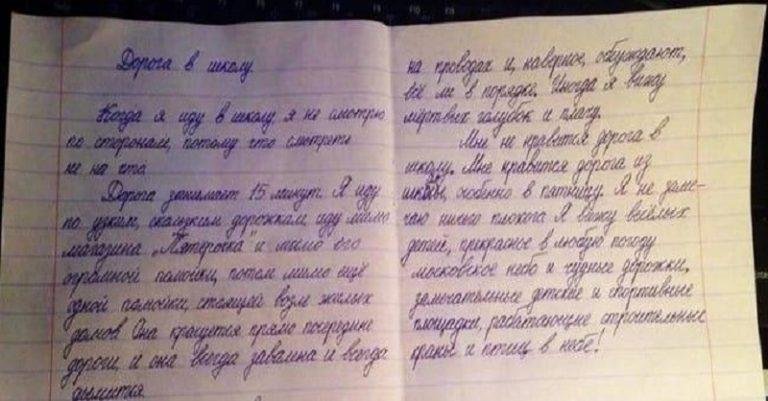 Дорога в школу.
Когда я иду в школу, я не смотрю
по сторонам, потому что смотреть
не на что.
Дорога занимает 15 минут. Я иду
по узким, скользким дорожкам, иду мимо
магазина „Пятёрочка" и мимо его
огромной помойки, потом мимо ещё
одной помойки, стоящей возле жилых
домов. Она крашется прямо посередине
дороги, и она всегда завалена и всегда
дымится.
на проводах и, наверное, обсуждают,
всё ли в порядке. Иногда я вижу
мёртвых голубок и плачу.
Мне не нравится дорога в
школу. Мне нравится дорога из
школы, особенно в пятницу. Я не заме-
чаю ничего плохого. Я вижу весёлых
детей, прекрасное в любую погоду
московское небо и чудные дорожки,
замечательные детские и спортивные
площадки, работающие строительные
краны и птиц в небе!